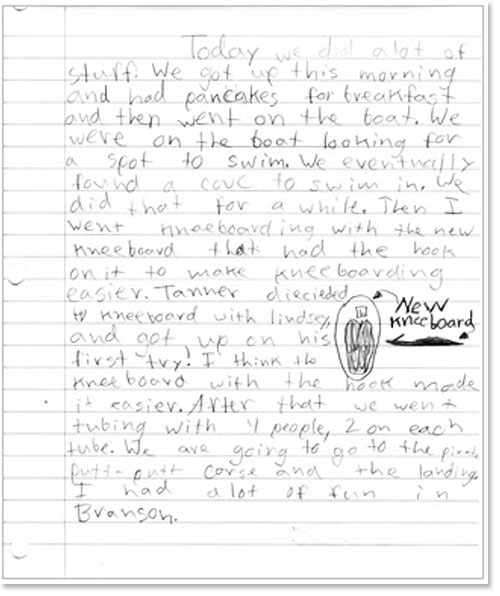 Today we did alot of
stuff. We got up this morning
and had pancakes for breakfast
and then went on the boat. We
were on the boat looking for
a spot to swim. We eventually
found a cove to swim in. We
did that for a while. Then I
went kneeboarding with the new
kneeboard that had the hook
on it to make kneeboarding
easier. Tanner diecieded
to kneeboard with lindsey,
and got up on his
first try! I think the
NEW
kneeboard
kneeboard with the hook made
it easier. After that we went
tubing with 4 people, 2 on each
tube. We are going to go to the pirate
putt-putt corse and the landing.
I had alot of fun in
Branson.